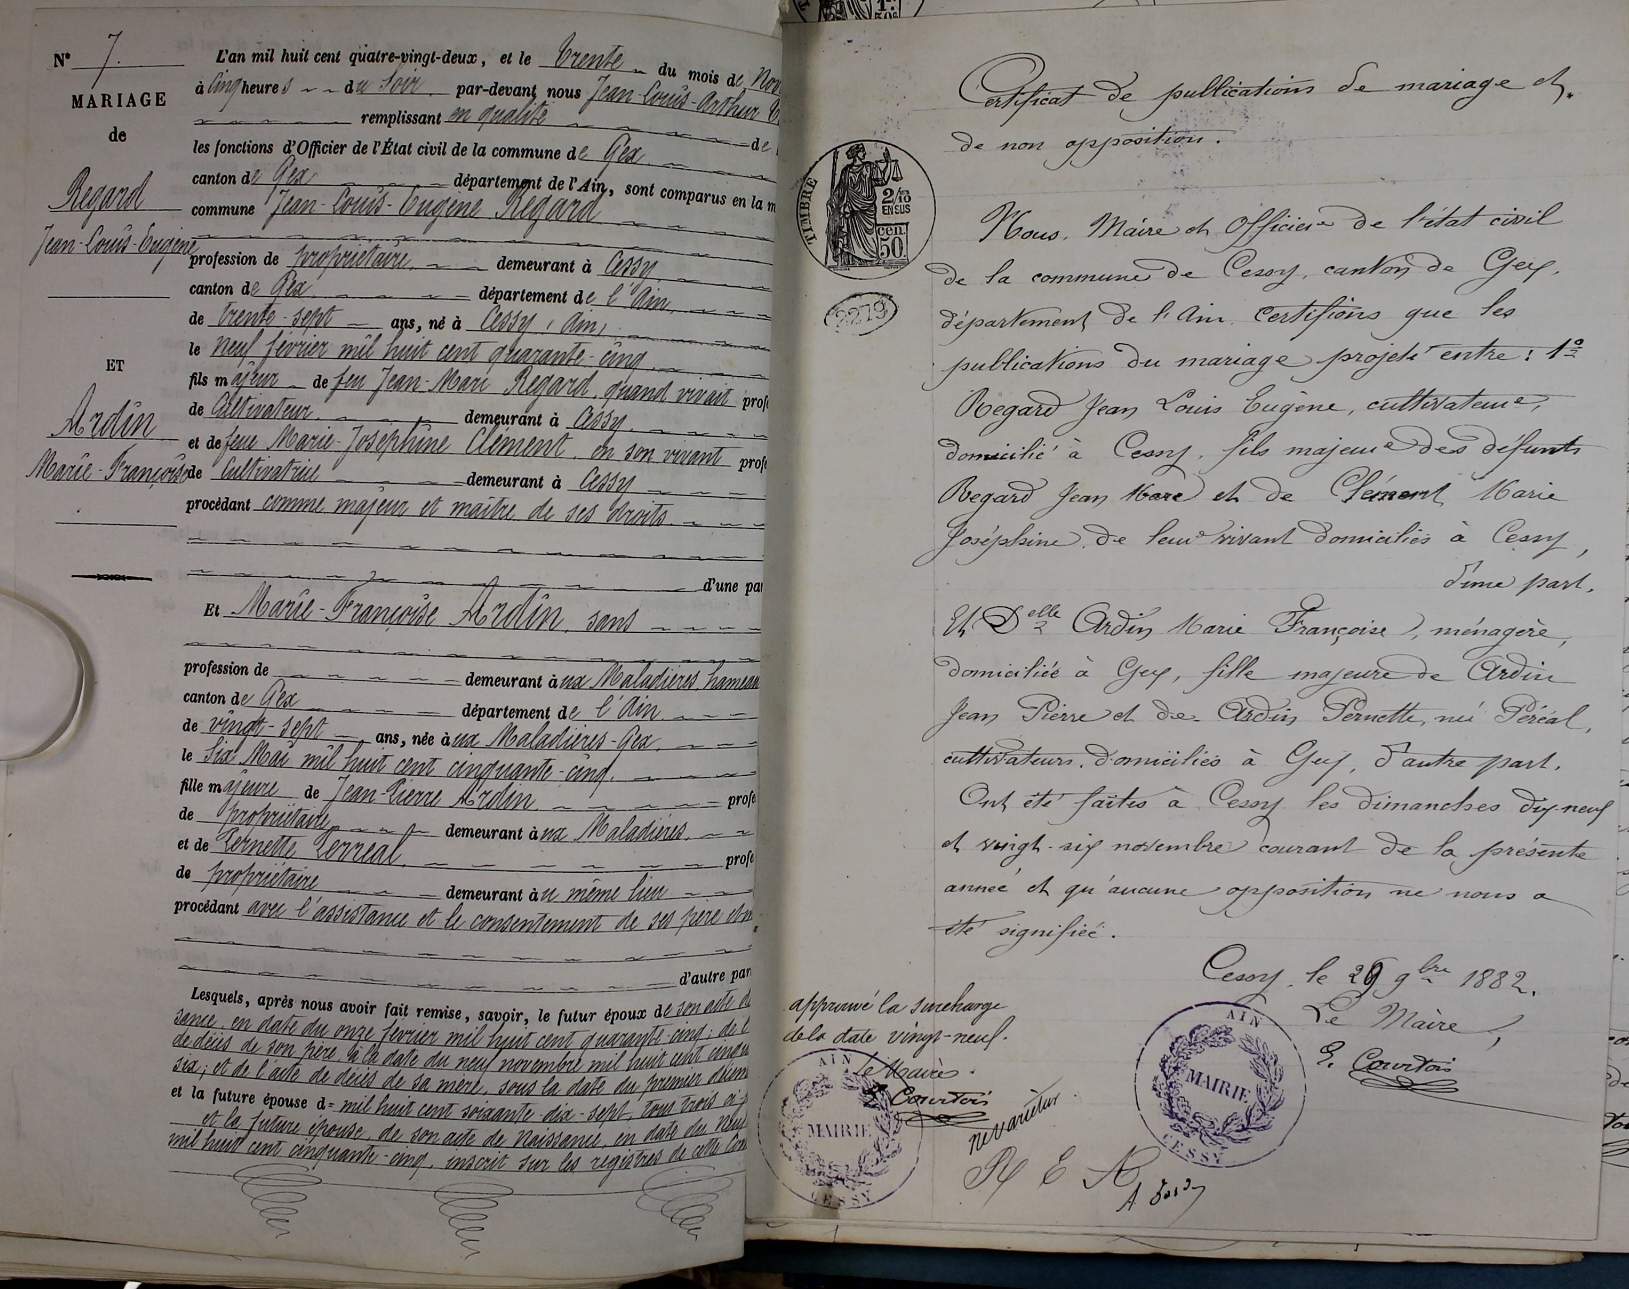 N° 7.
MARIAGE
de
Regard
Jean-Louis-Eugène
ET
Ardin
Marie-Françoise
L'an mil huit cent quatre-vingt-deux, et le trente du mois de Nov
à Cinq heures du Soir par-devant nous Jean-Louis-Arthur
remplissant en qualité de
les fonctions d'Officier de l'État civil de la commune de Gex
canton de Gex département de l'Ain, sont comparus en la m
commune Jean-Louis-Eugène Regard
profession de propriétaire demeurant à Cessy
canton de Gex département de l'Ain
de trente-sept ans, né à Cessy, Ain,
le neuf février mil huit cent quarante-cinq
fils majeur de feu Jean-Marie Regard, quand vivait prof
de Cultivateur demeurant à Cessy
et de feue Marie-Joséphine Clément, en son vivant prof
de Cultivatrice demeurant à Cessy
procédant comme majeur et maître de ses droits
d'une par
Et Marie-Françoise Ardin, sans
profession de demeurant aux Maladières, hameau
canton de Gex département de l'Ain
de vingt-sept ans, née aux Maladières-Gex
le Six Mai mil huit cent cinquante-cinq
fille majeure de Jean-Pierre Ardin profe
de propriétaire demeurant aux Maladières
et de Pernette Perréal profe
de propriétaire demeurant au même lieu
procédant avec l'assistance et le consentement de ses père et m
d'autre par
Lesquels, après nous avoir fait remise, savoir, le futur époux de son acte de
sance, en date du onze février mil huit cent quarante-cinq; de l
de décès de son père, à la date du neuf novembre mil huit cent cinqu
six; et de l'acte de décès de sa mère, sous la date du premier décem
et la future épouse d= mil huit cent soixante-dix-sept, tous trois
et la future épouse, de son acte de naissance, en date du neuf
mil huit cent cinquante-cinq, inscrit sur les registres de cette Com
TIMBRE
2/10
EN SUS
cen.
50
2279
Certificat de publications de mariage et
de non opposition.
Nous, Maire et Officier de l'état civil
de la commune de Cessy, canton de Gex,
département de l'Ain, certifions que les
publications du mariage projeté entre : 1°
Regard Jean Louis Eugène, cultivateur,
domicilié à Cessy, fils majeur des défunts
Regard Jean Marie et de Clément Marie
Joséphine, de leur vivant domiciliés à Cessy,
d'une part.
Et Delle Ardin Marie Françoise, ménagère,
domiciliée à Gex, fille majeure de Ardin
Jean Pierre et de Ardin Pernette, née Péréal,
cultivateurs, domiciliés à Gex, d'autre part.
Ont été faites à Cessy les dimanches dix-neuf
et vingt-six novembre courant de la présente
année et qu'aucune opposition ne nous a
été signifiée.
Cessy, le 29 9bre 1882.
Le Maire,
E. Courtois
AIN
MAIRIE
CESSY
approuvé la surcharge
de la date vingt-neuf.
Le Maire.
E. Courtois
AIN
MAIRIE
CESSY
Ne varietur
R E A